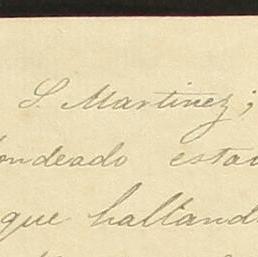 S. Martinez;
ondeado estau
que halland